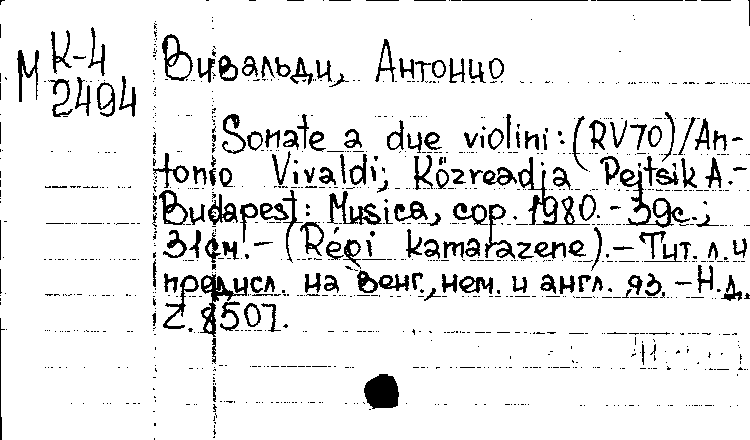 М К-4
2494
Вивальди, Антонио
Sonate a due violini: (RV70)/An-
tonio Vivaldi; Közreadja Pejtsik A.-
Budapest: Musica, cop. 1980.-39с.;
31см.-(Régi kamarazene).-Тит. л. и
предисл. на венг., нем. и англ. яз.-Н.д.
Z. 8507.